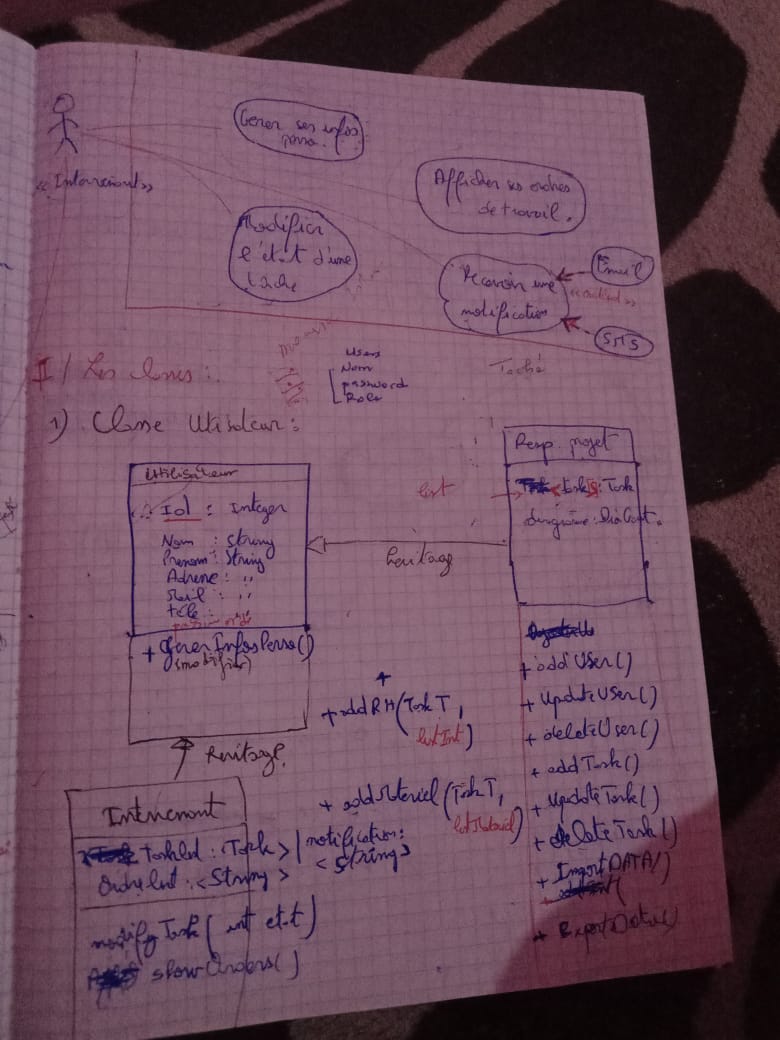 Gerer ses infos
perso.
« Intervenant »
Afficher ses ordres
de travail.
Modifier
l'état d'une
tâche
Recevoir une
notification
Email
SMS
Users
Nom
password
Role
Tache
II / Les classes :
1) Classe Utilisateur :
Utilisateur
Id : Integer
Nom : String
Prenom : String
Adresse : "
Mail : "
tele :
+ gererInfosPerso()
(modifier)
heritage
list
Resp. projet
tasks : Task
+ addUser()
+ updateUser()
+ deleteUser()
+ addTask()
+ updateTask()
+ deleteTask()
+ ImportDATA()
+ ExportData()
+
+ addRH(Task T,
listInt)
+ addMateriel(Task T,
listMateriel)
Heritage.
Intervenant
TaskList : <Task>
OrdreList : <String>
notification :
<String>
modifyTask( int etat)
showOrders()